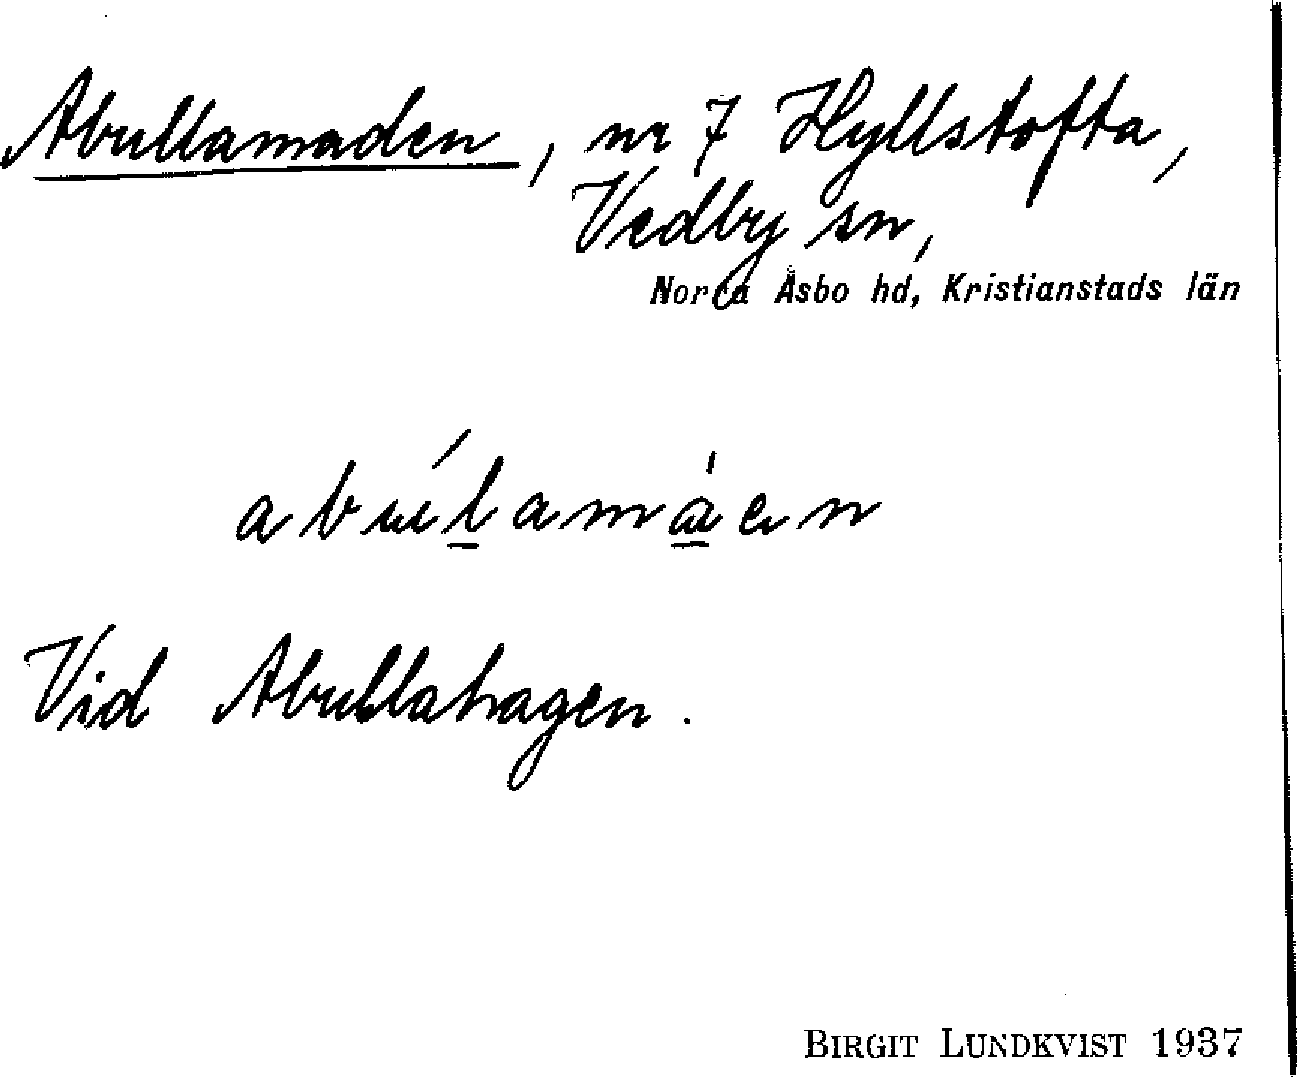 Abullamaden, nr 7 Hyllstofta,
Vedby sn,
Norra Åsbo hd, Kristianstads län
abúlamáen
Vid Abullahagen.
BIRGIT LUNDKVIST 1937